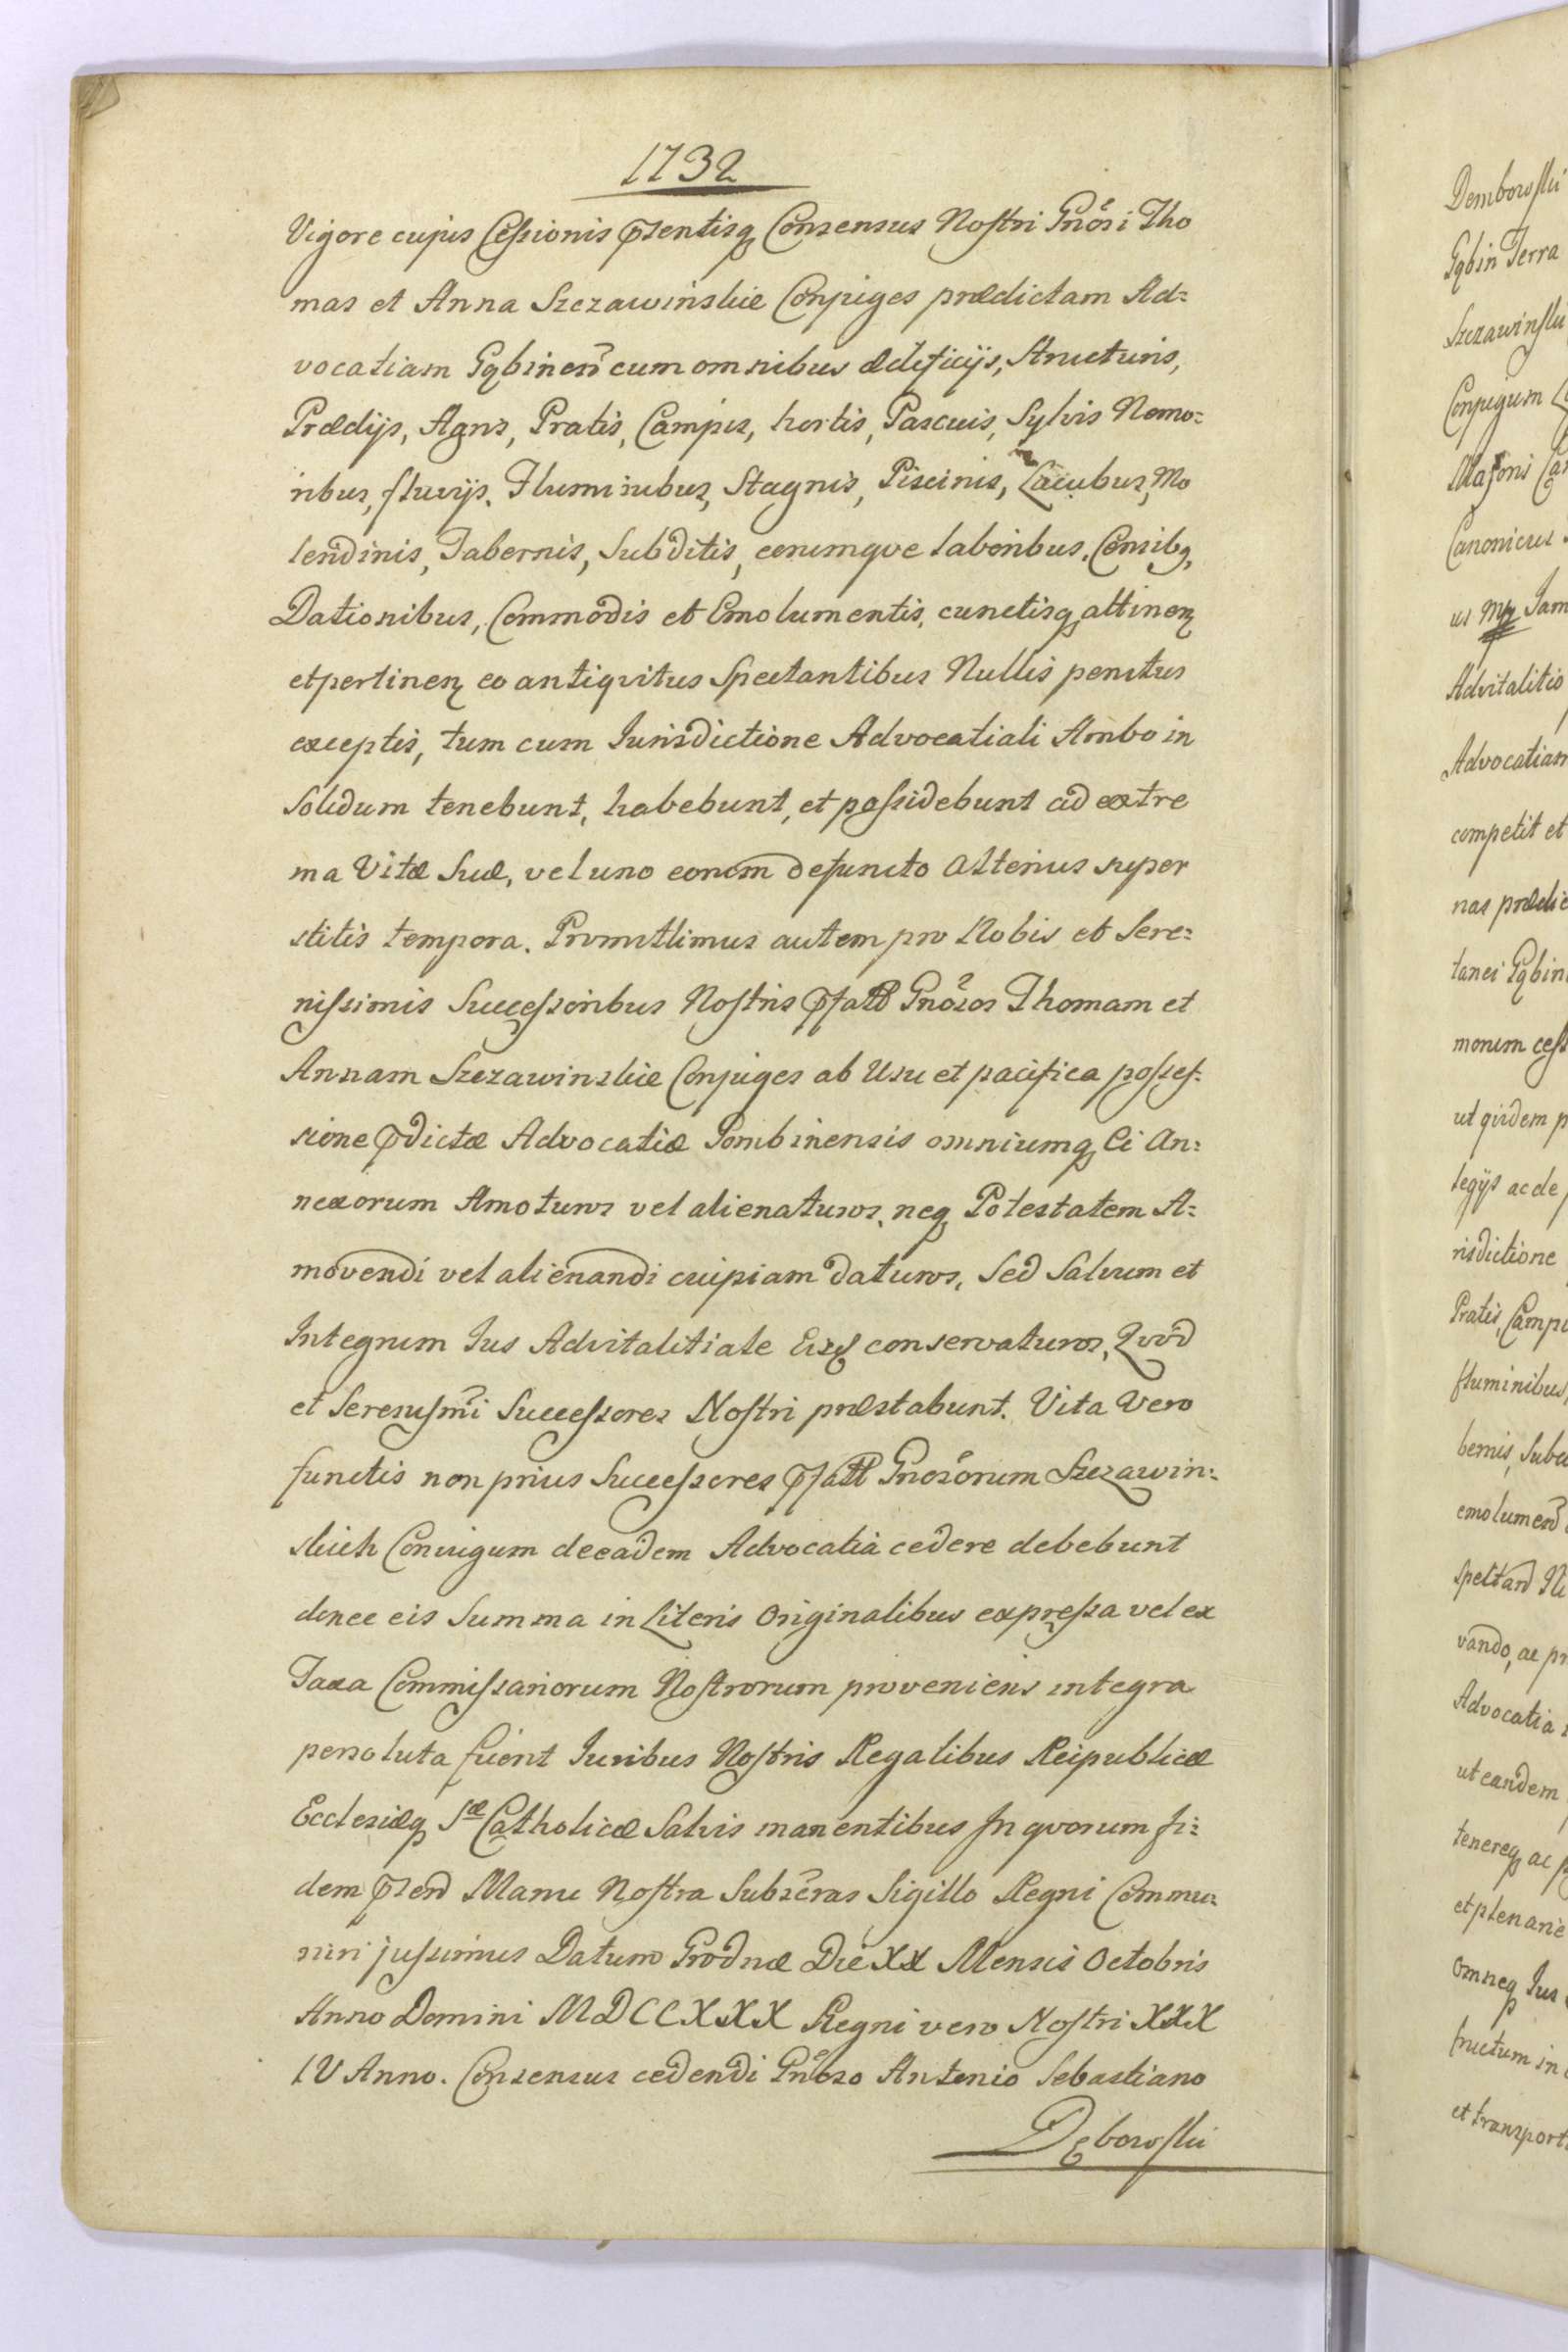 1732
Vigore cujus Cessionis pręsentisq Consensus Nostri Gnosi Tho
mas et Anna Szczawinskie Conjuges prædictam Ad=
vocatiam Gąbinen cum omnibus ædificijs, Structuris,
Prædijs, Agris, Pratis, Campis, hortis, Pascuis, Sylvis Nemo=
ribus, fluvijs, Fluminibus, Stagnis, Piscinis, Lacubus, Mo
lendinis, Tabernis, Subditis, eorumqve laboribus, Censibq,
Dationibus, Commodis et Emolumentis, cunctisq attinen
et pertinen eo antiqvitus Spectantibus Nullis penitus
exceptis, tum cum Iurisdictione Advocatiali Ambo in
Solidum tenebunt, habebunt, et possidebunt ad extre
ma Vitæ Suæ, vel uno eorum defuncto alterius super
stitis tempora. Promittimus autem pro Nobis et Sere=
nissimis Successoribus Nostris pfatt Gnosos Thomam et
Annam Szczawinskie Conjuges ab Usu et pacifica posses=
sione pdictæ Advocatiæ Gombinensis omniumq Ei An=
nexorum Amoturos vel alienaturos, neq Potestatem A=
movendi vel alienandi cuipiam daturos, Sed Salvum et
Integrum Ius Advitalitiale Eisd conservaturos, Qvod
et Serenismi Successores Nostri præstabunt. Vita Vero
functis non prius Successores pfatt Gnosorum Szczawin=
skich Coniugum de eadem Advocatia cedere debebunt
donec eis Summa in Literis Originalibus expressa vel ex
Taxa Commissariorum Nostrorum proveniens integra
persoluta fuerit Iuribus Nostris Regalibus Reipublicæ
Ecclesiæq Sæ Catholicæ Salvis manentibus In qvorum fi=
dem psen Manu Nostra Subscras Sigillo Regni Commu=
niri jussimus Datum Grodnæ Die XX Mensis Octobris
Anno Domini MDCCXXX Regni vero Nostri XXX
IV Anno. Consensus cedendi Gnoso Antonio Sebastiano
Dęborosskii
Demborosskii
Gąbin Terra
Szczawinskii
Conjugum
Canonicus
us mp Jam
Advitalitio
Advocatiam
competit et
nas prædic
tanei Gąbin
monum cess
ut qvidem p
legijs ac de
risdictione
Pratis, Campi
fluminibus,
bernis, Subd
emolumen
spectan N
vando, ac pr
Advocatia
ut eandem
tenereq ac
et plenarie
omneq Ius
fructum in
et transport